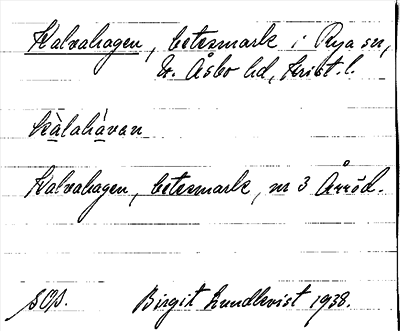 Kalvahagen, betesmark i Rya sn,
N. Åsbo hd, Krist. l.
kàlahávan
Kalvahagen, betesmark, nr 3 Årröd.
Birgit Lundkvist 1938.